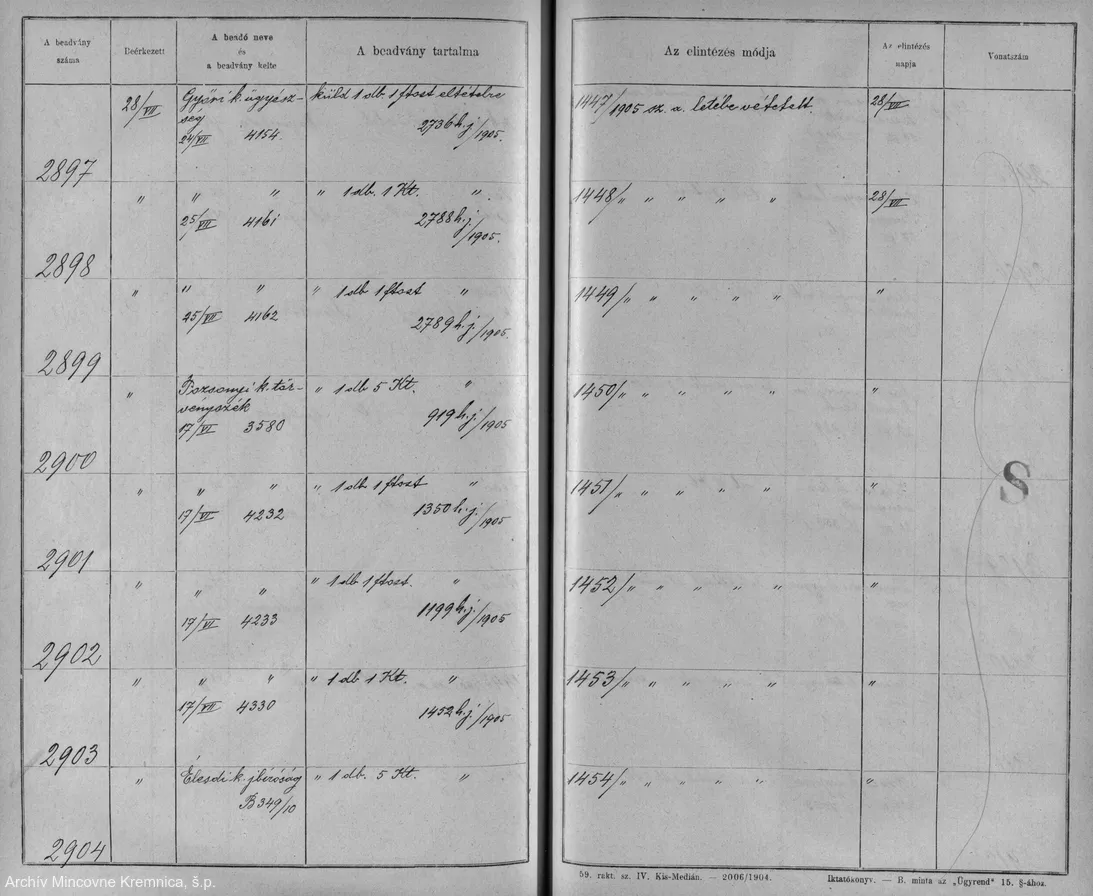 A beadvány száma
Beérkezett
A beadó neve és a beadvány kelte
A beadvány tartalma
Az elintézés módja
Az elintézés napja
Vonatszám
28/VII Győri k. ügyész- küld 1 db. 1 ftost eltételre 1447/1905 sz. a. letébe vétetett. 28/VII
ség
24/VII 4154. 2736 h.j./1905.
2897
" " " " 1 db. 1 Kt. " 1448/" " " " " 28/VII
25/VII 4161 2788 h.j./1905.
2898
" " " " 1 db 1 ftost " 1449/" " " " " "
25/VII 4162 2789 h.j./1905.
2899
" Pozsonyi k. tör- " 1 db 5 Kt. " 1450/" " " " " "
vényszék
17/VI 3580 919 h.j./1905
2900
" " " " 1 db 1 ftost " 1451/" " " " " "
17/VI 4232 1350 h.j./1905
2901
" " " " 1 db 1 ftost. " 1452/" " " " " "
17/VII 4233 1199 h.j./1905
2902
" " " " 1 db 1 Kt. " 1453/" " " " " "
17/VII 4330 1452 h.j./1905
2903
" Élesdi k. jbíróság " 1 db. 5 Kt. " 1454/" " " " " "
B 349/10
2904
S
59. rakt. sz. IV. Kis-Medián. — 2006/1904.
Iktatókönyv. — B. minta az „Ügyrend" 15. §-ához.
Archív Mincovne Kremnica, š.p.